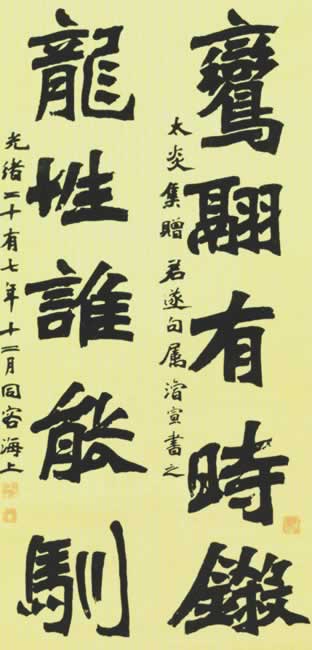 鸞翮有時鎩
太炎集贈 君遂句属濬宣書之
龍性誰能馴
光緒二十有七年十二月同客海上